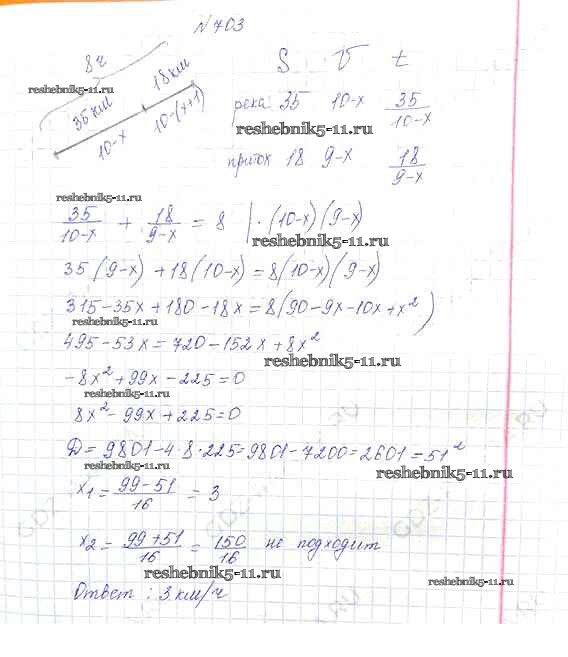 №703
8ч
reshebnik5-11.ru
35 км 18 км
10-x 10-(x+1)
S V t
река 35 10-x 35/(10-x)
reshebnik5-11.ru
приток 18 9-x 18/(9-x)
reshebnik5-11.ru
35/(10-x) + 18/(9-x) = 8 | ·(10-x)(9-x)
reshebnik5-11.ru
35(9-x)+18(10-x)=8(10-x)(9-x)
315-35x+180-18x=8(90-9x-10x+x²)
reshebnik5-11.ru
495-53x=720-152x+8x²
reshebnik5-11.ru
-8x²+99x-225=0
reshebnik5-11.ru
8x²-99x+225=0
D=9801-4·8·225=9801-7200=2601=51²
reshebnik5-11.ru
reshebnik5-11.ru
x₁=(99-51)/16=3
x₂=(99+51)/16=150/16 не подходит
reshebnik5-11.ru
reshebnik5-11.ru
Ответ: 3 км/ч